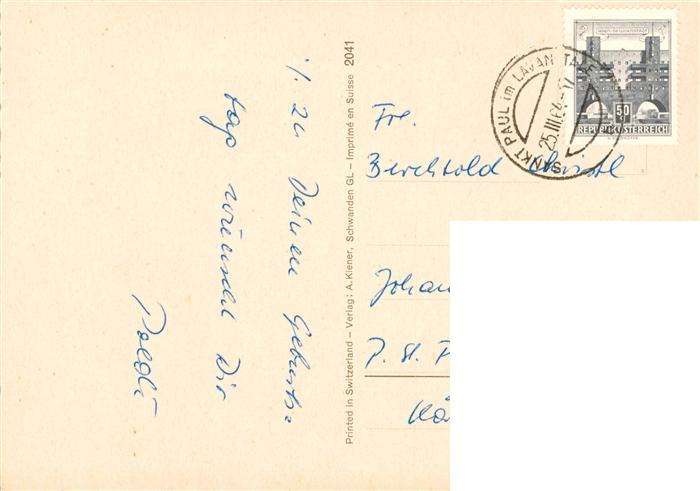 % zu Deinem Geburts=
tag wünscht Dir
Poldi
Printed in Switzerland – Verlag: A. Kiener, Schwanden GL – Imprimé en Suisse 2041
Frl.
Berchtold Christl
Johan
P. St. P
Kä
SANKT PAUL im LAVANTTALE
25.III.64
50
REPUBLIK ÖSTERREICH